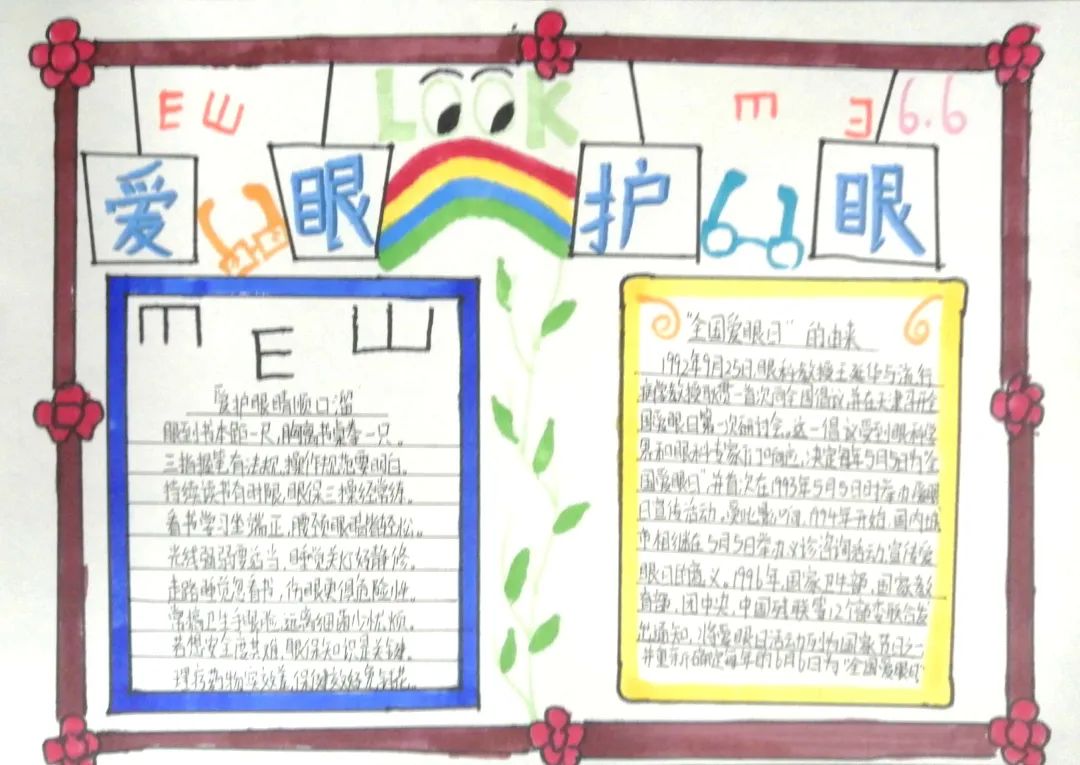 LOOK
E
E
E
E
6.6
爱
眼
护
眼
E
E
E
爱护眼睛顺口溜
眼到书本距一尺,胸离书桌拳一只。
三指握笔有法规,操作规范要明白。
持续读书有时限,眼保三操经常练。
看书学习坐端正,腰颈眼睛皆轻松。
光线强弱要适当,睡觉关灯好静修。
走路睡觉忌看书,伤眼更得危险性。
常搞卫生手紧,远离细菌少忧烦。
若想安全度其难,眼保知识是关键。
理疗药物实效差,保健
"全国爱眼日"的由来
1992年9月25日,眼科教授王延华与流行
病学教授耿贯一首次向全国倡议,并在天津召开全
国爱眼日第一次研讨会。这一倡议受到眼科学
界和眼科专家们响应,决定每年5月5日为"全
国爱眼日",并首次在1993年5月5日举办爱眼
日宣传活动。受此影响,1994年开始,国内城
市相继在5月5日举办义诊咨询活动,宣传爱
眼日的意义。1996年,国家卫生部,国家教
育部,团中央,中国残联等12个部委联合发
出通知,将爱眼日活动列为国家节日之一
并重新确定每年的6月6日为"全国爱眼日"